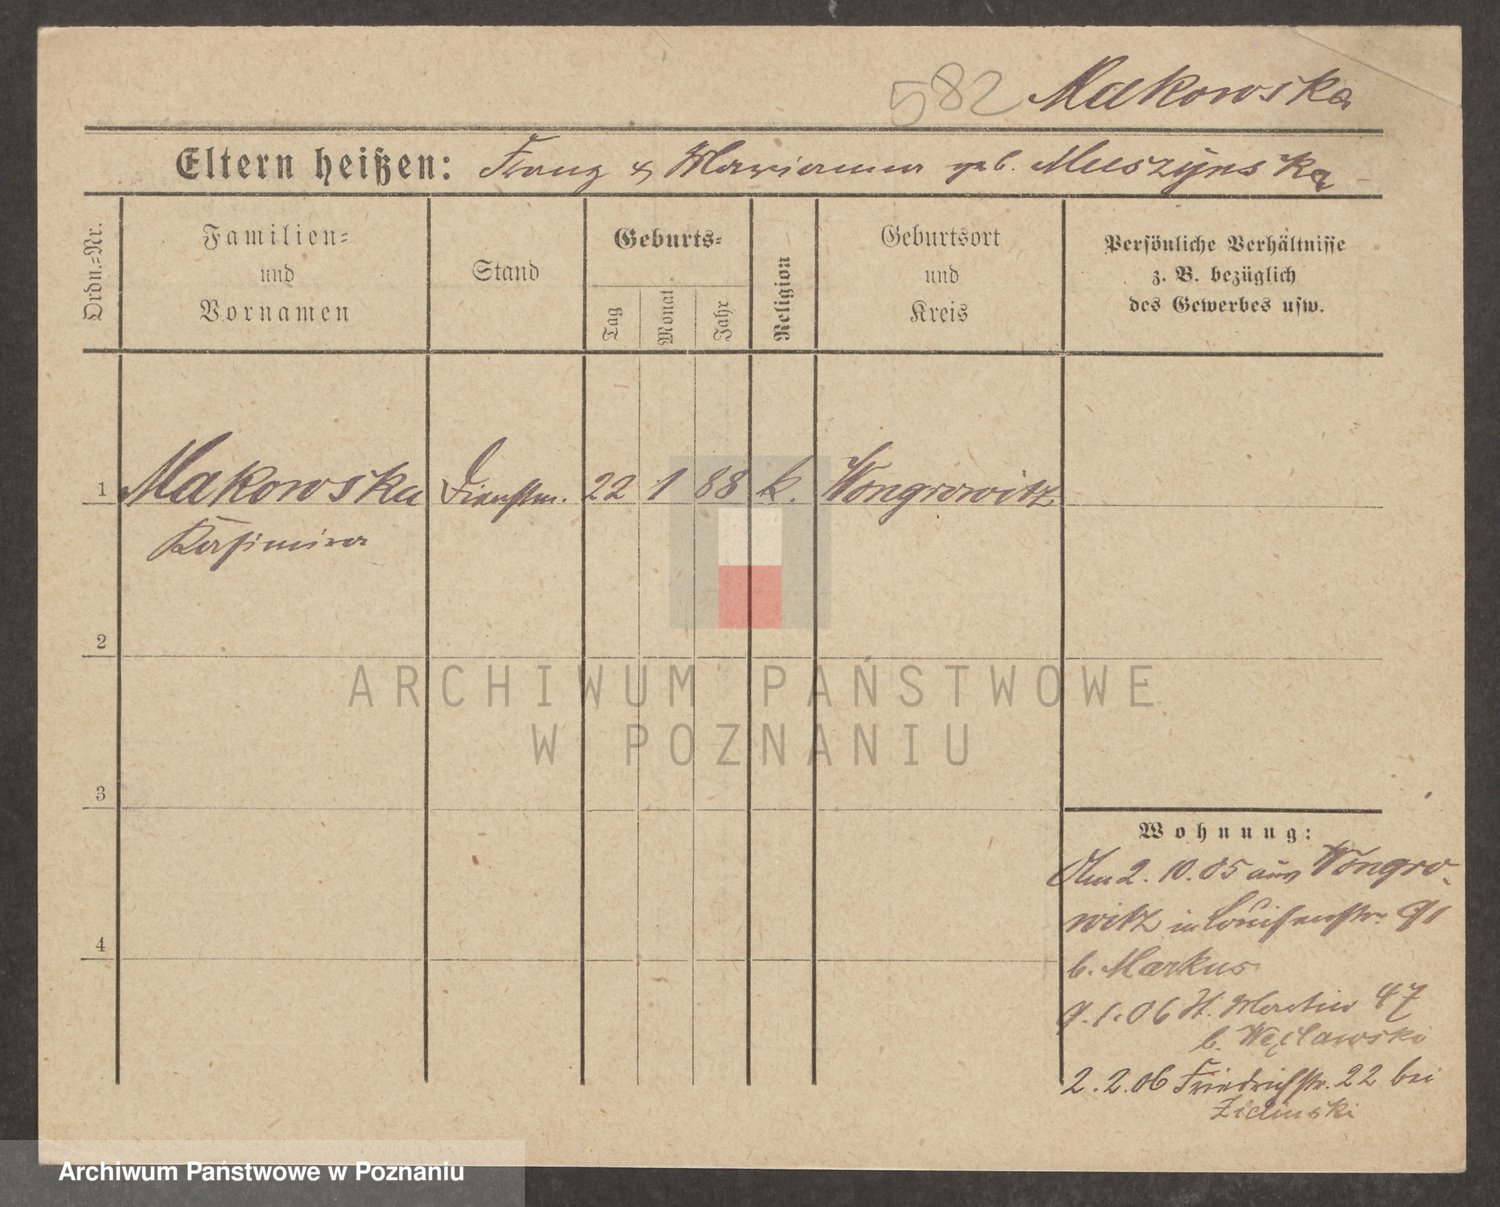 582 Makowska
Eltern heißen: Franz & Marianna geb. Muszynska
Ordn.-Nr.
Familien-
und
Vornamen
Stand
Geburts-
Tag
Monat
Jahr
Religion
Geburtsort
und
Kreis
Persönliche Verhältnisse
z. B. bezüglich
des Gewerbes usw.
1 Makowska Dienstm. 22 1 88 k. Wongrowitz
Kasimira
2
ARCHIWUM PAŃSTWOWE
W POZNANIU
3
Wohnung:
Am 2. 10. 05 aus Wongro-
witz in Louisenstr. 91
b. Markus
4
9.1.06 St. Martin 47
b. Węclawski
2.2.06 Friedrichstr. 22 bei
Zielinski
Archiwum Państwowe w Poznaniu